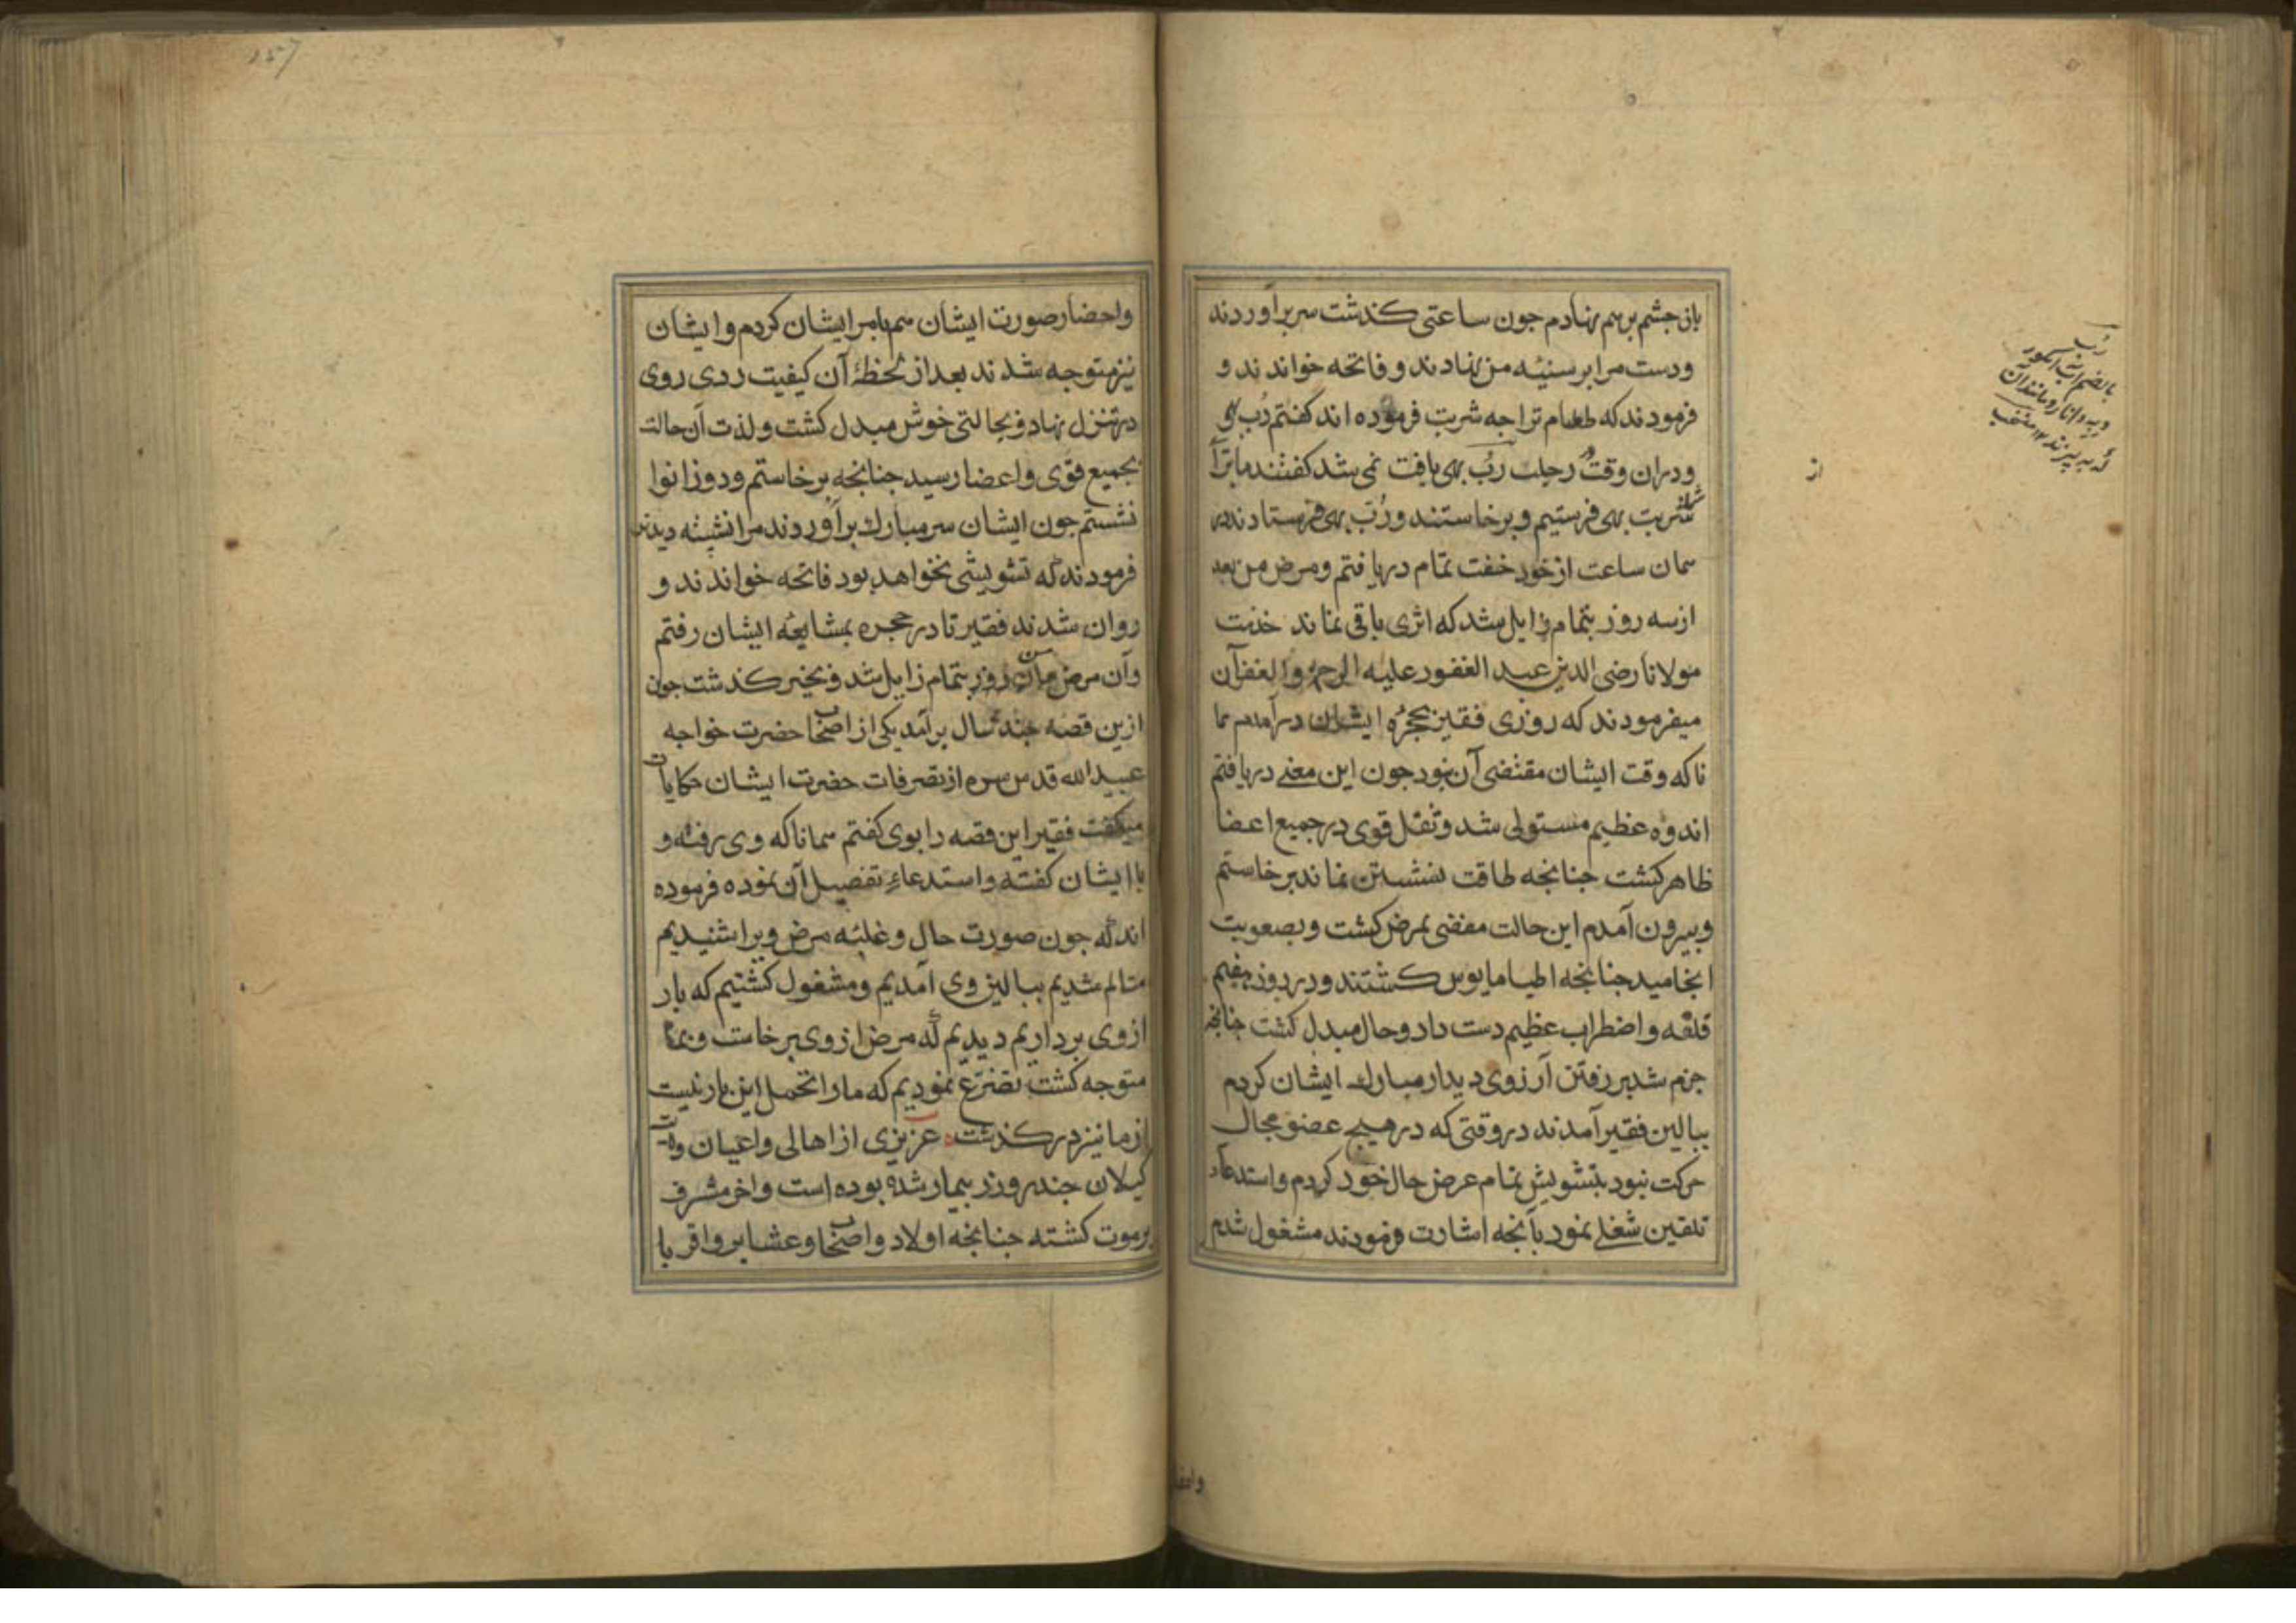 بانی چشم برهم نهادم جون ساعتی کذشت سربرآوردند
ودست مرا برسینهٔ من نهادند و فاتحه خواندند و
فرمودند که طعام ترا جه شربت فرموده اند کفتم رُب بهی
ودران وقت در رُب بهی یافت نمی شد کفتند مابرآ
شربت بهی فرستیم و برخاستند و رُبّ بهی فرستادند در
همان ساعت از خود خفت تمام دریافتم ومرض من بعد
ازسه روز بتمام زایل شد که اثری باقی نماند خدمت
مولانا رضی الدین عبد الغفور علیه الرحمة والغفرآن
میفرمودند که روزی فقیر بحجرهٔ ایشان درآمدم هما
ناکه وقت ایشان مقتضی آن نبود جون این معنی دریافتم
اندوه عظیم مستولی شد وثقل قوی در جمیع اعضا
ظاهر کشت جنانجه طاقت نشستن نماند برخاستم
وبیرون آمدم این حالت مفضی بمرض کشت وبصعوبت
انجامید جنانجه اطبا مایوس کشتند ودر روز هفتم
قلقه واضطراب عظیم دست داد وحال مبدل کشت جنانجه
جزم شد برفتن آرزوی دیدار مبارک ایشان کردم
ببالین فقیر آمدند در وقتی که در هیچ عضو مجال
حرکت نبود بتشویش تمام عرض حال خود کردم واستدعاء
تلقین شغلی نمود بآنجه اشارت فرمودند مشغول شدم
رُب
بالضم آب انکور
وبه وانار ومانندآن
که بپزند ١٢ منتخب
از
واحضا
157
واحضار صورت ایشان هم بامر ایشان کردم وایشان
نیز متوجه شدند بعد از لحظهٔ آن کیفیت ردی روی
در تنزل نهاد وبحالتی خوش مبدل کشت ولذت آن حالت
بجمیع قوی واعضا رسید جنانجه برخاستم ودوزانوا
نشستم جون ایشان سر مبارک برآوردند مرا نشسته دیدند
فرمودند که تشویشی نخواهد بود فاتحه خواندند و
روان شدند فقیر تا در حجره بمشایعهٔ ایشان رفتم
وآن مرض من همان روز بتمام زایل شد وبخیر کذشت جون
ازین قصه جند سال برآمد یکی از اصحاب حضرت خواجه
عبید الله قدس سره از تصرفات حضرت ایشان حکایات
میکفت فقیر این قصه را بوی کفتم همانا که وی رفته و
با ایشان کفته واستدعاء تفصیل آن نموده فرموده
اند که جون صورت حال و غلبهٔ مرض ویرا شنیدیم
متالم شدیم ببالین وی آمدیم ومشغول کشتیم که بار
از وی برداریم دیدیم که مرض از وی برخاست وبما
متوجه کشت تضرّع نمودیم که مارا تحمل این بار نیست
از ما نیز درکذشت عزیزی از اهالی واعیان ولایت
کیلان جند روز بیمار شده بوده است واخر مشرف
برموت کشته جنانجه اولاد واصحاب وعشایر واقربا